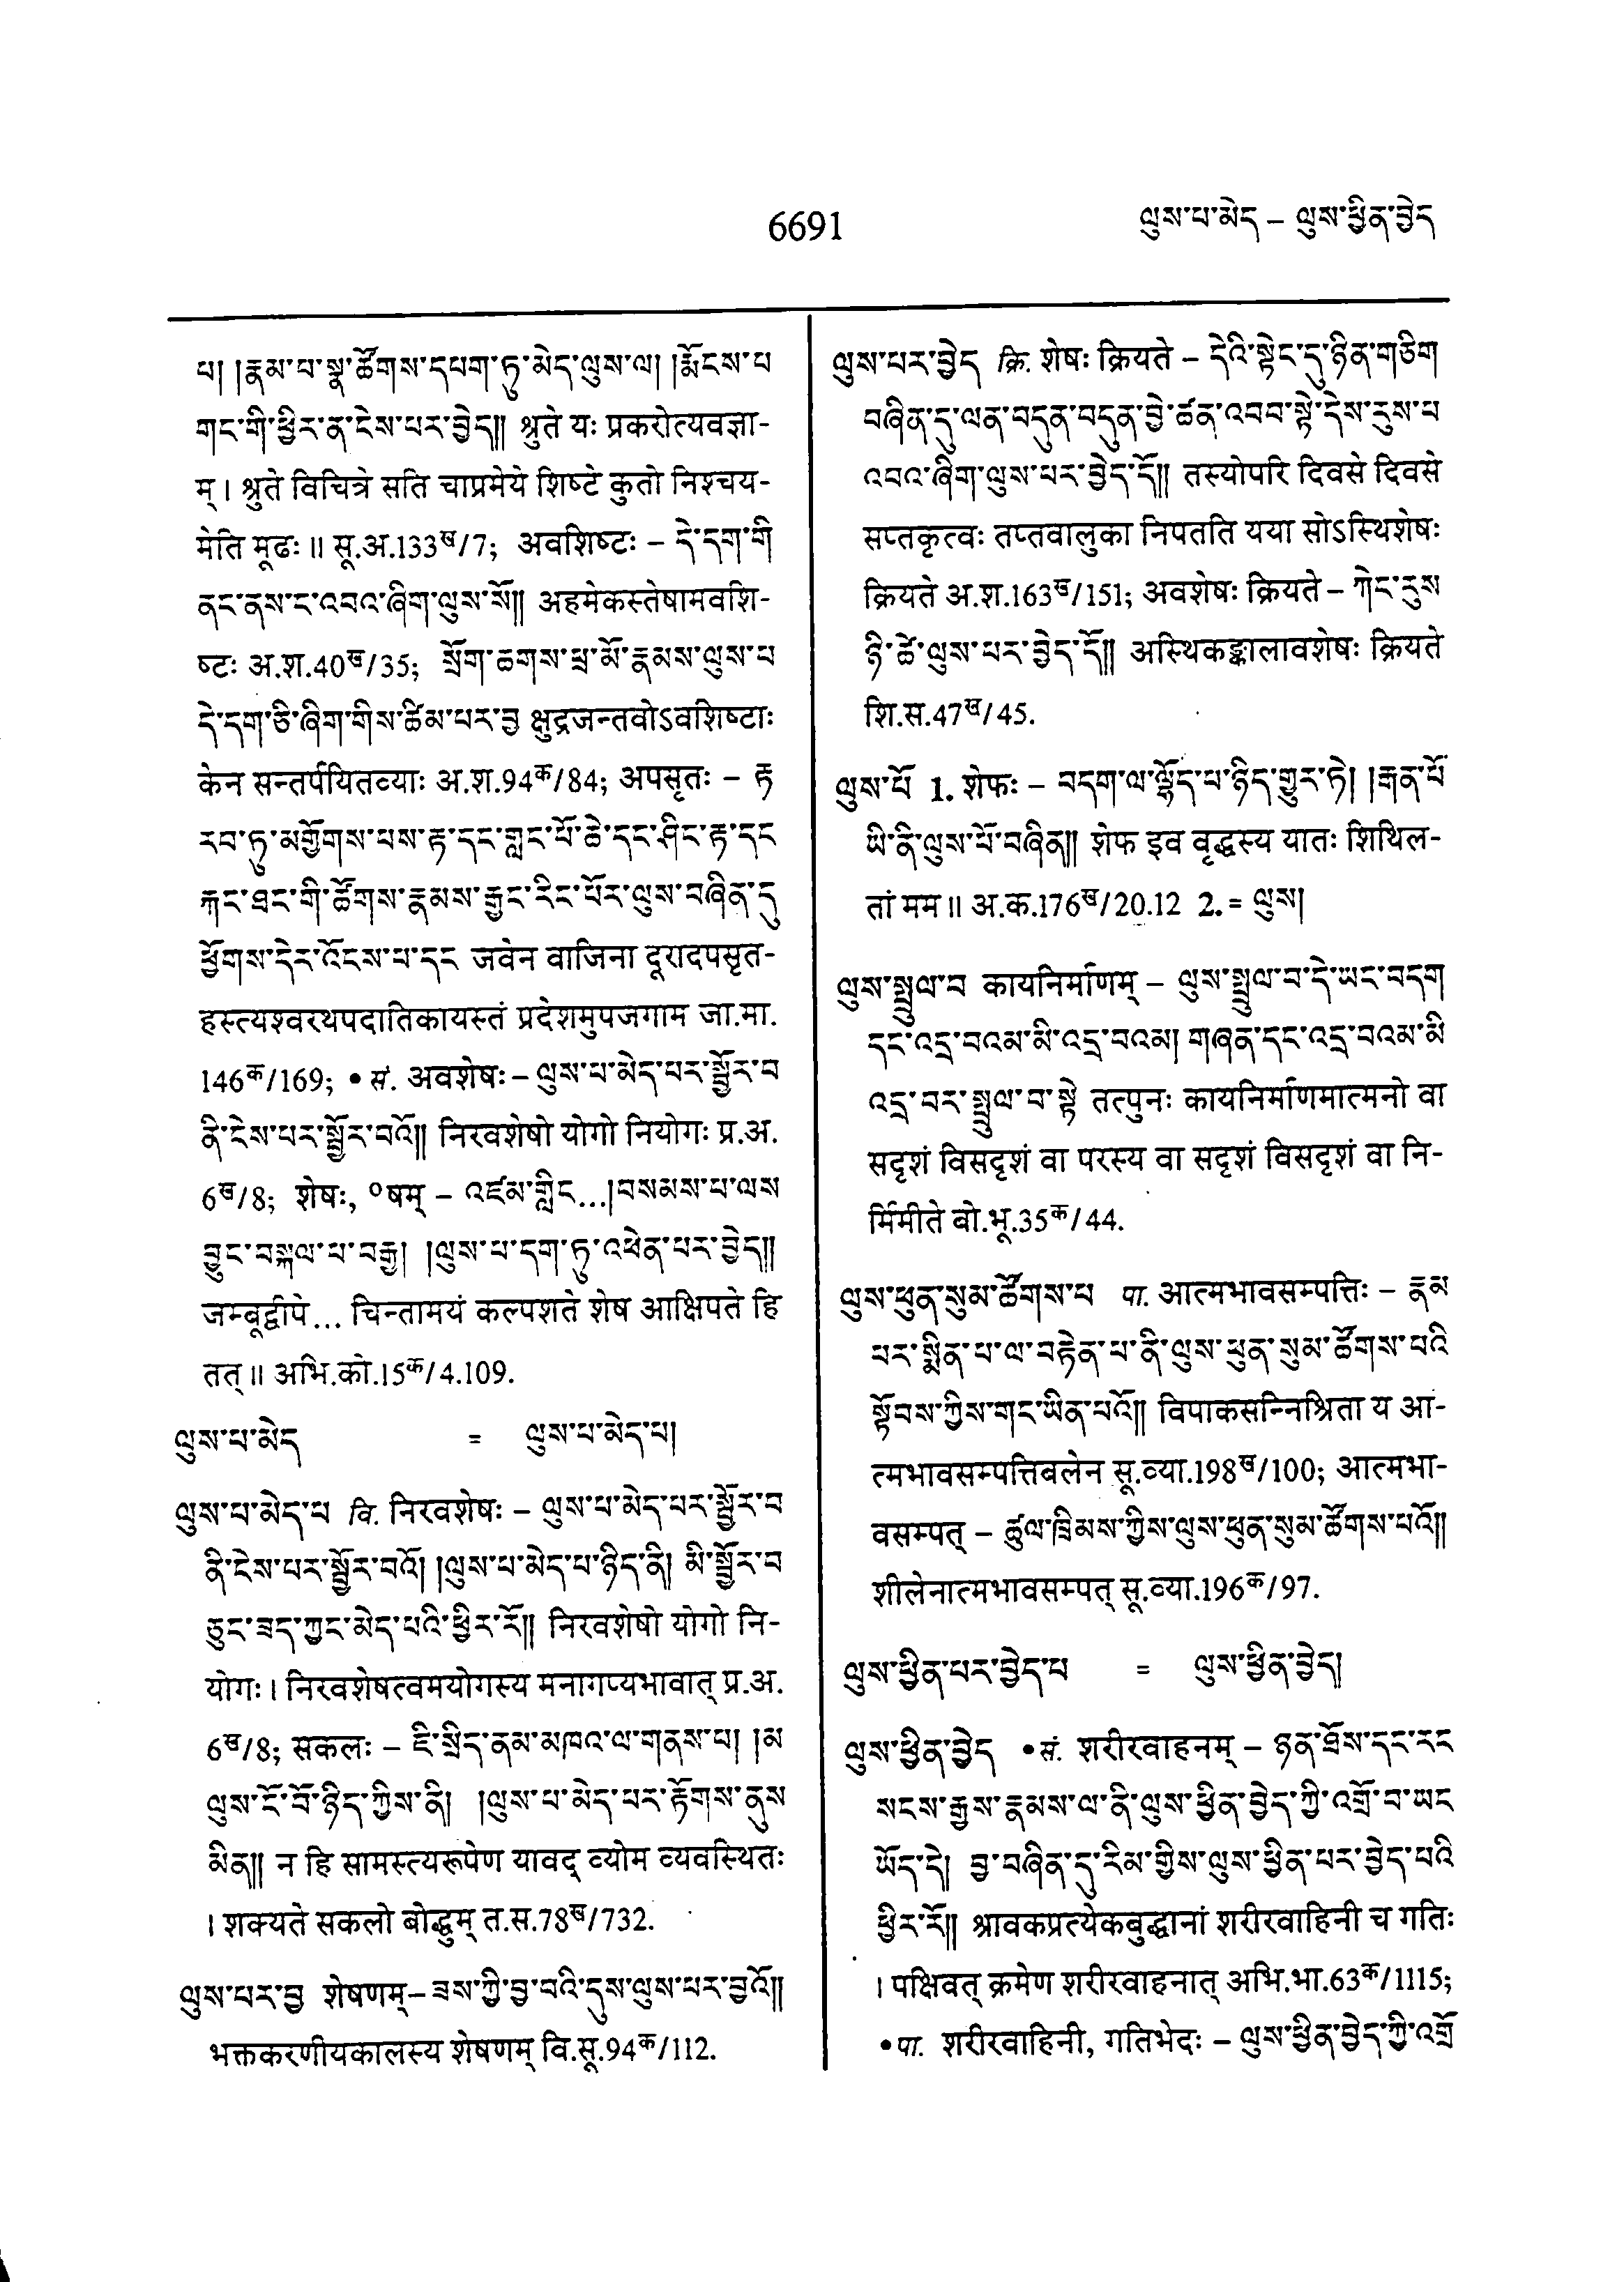 6691
ལུས་པ་མེད – ལུས་ཕྱིན་བྱེད
པ། །རྣམ་པ་སྣ་ཚོགས་དཔག་ཏུ་མེད་ལུས་ལ། །རྨོངས་པ
གང་གི་ཕྱིར་ན་ངེས་པར་བྱེད།། श्रुते यः प्रकरोत्यवज्ञा-
म्। श्रुते विचित्रे सति चाप्रमेये शिष्टे कुतो निश्चय-
मेति मूढः॥ सू.अ.133ख/7; अवशिष्टः – དེ་དག་གི
ནང་ནས་ང་འབའ་ཞིག་ལུས་སོ།། अहमेकस्तेषामवशि-
ष्टः अ.श.40ख/35; སྲོག་ཆགས་ཕྲ་མོ་རྣམས་ལུས་པ
དེ་དག་ཅི་ཞིག་གིས་ཚིམ་པར་བྱ क्षुद्रजन्तवोऽवशिष्टाः
केन सन्तर्पयितव्याः अ.श.94क/84; अपसृतः – རྟ
རབ་ཏུ་མགྱོགས་པས་རྟ་དང་གླང་པོ་ཆེ་དང་ཤིང་རྟ་དང
རྐང་ཐང་གི་ཚོགས་རྣམས་རྒྱང་རིང་པོར་ལུས་བཞིན་དུ
ཕྱོགས་དེར་འོངས་པ་དང जवेन वाजिना दूरादपसृत-
हस्त्यश्वरथपदातिकायस्तं प्रदेशमुपजगाम जा.मा.
146क/169; • सं. अवशेषः – ལུས་པ་མེད་པར་སྦྱོར་བ
ནི་ངེས་པར་སྦྱོར་བའོ།། निरवशेषो योगो नियोगः प्र.अ.
6ख/8; शेषः, ०षम् – འཛམ་གླིང...།བསམས་པ་ལས
བྱུང་བསྐལ་པ་བརྒྱ། །ལུས་པ་དག་ཏུ་འཕེན་པར་བྱེད།།
जम्बूद्वीपे... चिन्तामयं कल्पशते शेष आक्षिपते हि
तत्॥ अभि.को.15क/4.109.
ལུས་པ་མེད = ལུས་པ་མེད་པ།
ལུས་པ་མེད་པ वि. निरवशेषः – ལུས་པ་མེད་པར་སྦྱོར་བ
ནི་ངེས་པར་སྦྱོར་བའོ། །ལུས་པ་མེད་པ་ཉིད་ནི། མི་སྦྱོར་བ
ཅུང་ཟད་ཀྱང་མེད་པའི་ཕྱིར་རོ།། निरवशेषो योगो नि-
योगः। निरवशेषत्वमयोगस्य मनागप्यभावात् प्र.अ.
6ख/8; सकलः – ཇི་སྲིད་ནམ་མཁའ་ལ་གནས་པ། །མ
ལུས་ངོ་བོ་ཉིད་ཀྱིས་ནི། །ལུས་པ་མེད་པར་རྟོགས་ནུས
མིན།། न हि सामस्त्यरूपेण यावद् व्योम व्यवस्थितः
। शक्यते सकलो बोद्धुम् त.स.78ख/732.
ལུས་པར་བྱ शेषणम् – ཟས་ཀྱི་བྱ་བའི་དུས་ལུས་པར་བྱའོ།།
भक्तकरणीयकालस्य शेषणम् वि.सू.94क/112.
ལུས་པར་བྱེད क्रि. शेषः क्रियते – དེའི་སྟེང་དུ་ཉིན་གཅིག
བཞིན་དུ་ལན་བདུན་བདུན་བྱེ་ཚན་འབབ་སྟེ་དེས་རུས་པ
འབའ་ཞིག་ལུས་པར་བྱེད་དོ།། तस्योपरि दिवसे दिवसे
सप्तकृत्वः तप्तवालुका निपतति यया सोऽस्थिशेषः
क्रियते अ.श.163ख/151; अवशेषः क्रियते – ཀེང་རུས
ཉི་ཚེ་ལུས་པར་བྱེད་དོ།། अस्थिकङ्कालावशेषः क्रियते
शि.स.47ख/45.
ལུས་པོ 1. शेफः – བདག་ལ་ལྷོད་པ་ཉིད་གྱུར་ཏེ། །རྒན་པོ
ཡི་ནི་ལུས་པོ་བཞིན།། शेफ इव वृद्धस्य यातः शिथिल-
तां मम॥ अ.क.176ख/20.12 2. = ལུས།
ལུས་སྤྲུལ་བ कायनिर्माणम् – ལུས་སྤྲུལ་བ་དེ་ཡང་བདག
དང་འདྲ་བའམ་མི་འདྲ་བའམ། གཞན་དང་འདྲ་བའམ་མི
འདྲ་བར་སྤྲུལ་བ་སྟེ तत्पुनः कायनिर्माणमात्मनो वा
सदृशं विसदृशं वा परस्य वा सदृशं विसदृशं वा नि-
र्मिमीते बो.भू.35क/44.
ལུས་ཕུན་སུམ་ཚོགས་པ पा. आत्मभावसम्पत्तिः – རྣམ
པར་སྨིན་པ་ལ་བརྟེན་པ་ནི་ལུས་ཕུན་སུམ་ཚོགས་པའི
སྟོབས་ཀྱིས་གང་ཡིན་པའོ།། विपाकसन्निश्रिता य आ-
त्मभावसम्पत्तिबलेन सू.व्या.198ख/100; आत्मभा-
वसम्पत् – ཚུལ་ཁྲིམས་ཀྱིས་ལུས་ཕུན་སུམ་ཚོགས་པའོ།།
शीलेनात्मभावसम्पत् सू.व्या.196क/97.
ལུས་ཕྱིན་པར་བྱེད་པ = ལུས་ཕྱིན་བྱེད།
ལུས་ཕྱིན་བྱེད • सं. शरीरवाहनम् – ཉན་ཐོས་དང་རང
སངས་རྒྱས་རྣམས་ལ་ནི་ལུས་ཕྱིན་བྱེད་ཀྱི་འགྲོ་བ་ཡང
ཡོད་དེ། བྱ་བཞིན་དུ་རིམ་གྱིས་ལུས་ཕྱིན་པར་བྱེད་པའི
ཕྱིར་རོ།། श्रावकप्रत्येकबुद्धानां शरीरवाहिनी च गतिः
। पक्षिवत् क्रमेण शरीरवाहनात् अभि.भा.63क/1115;
• पा. शरीरवाहिनी, गतिभेदः – ལུས་ཕྱིན་བྱེད་ཀྱི་འགྲོ